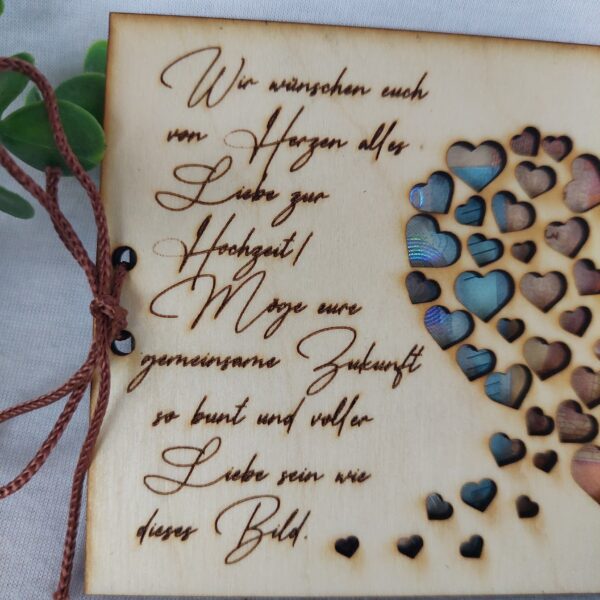 Wir wünschen euch
von Herzen alles
Liebe zur
Hochzeit!
Möge eure
gemeinsame Zukunft
so bunt und voller
Liebe sein wie
dieses Bild.